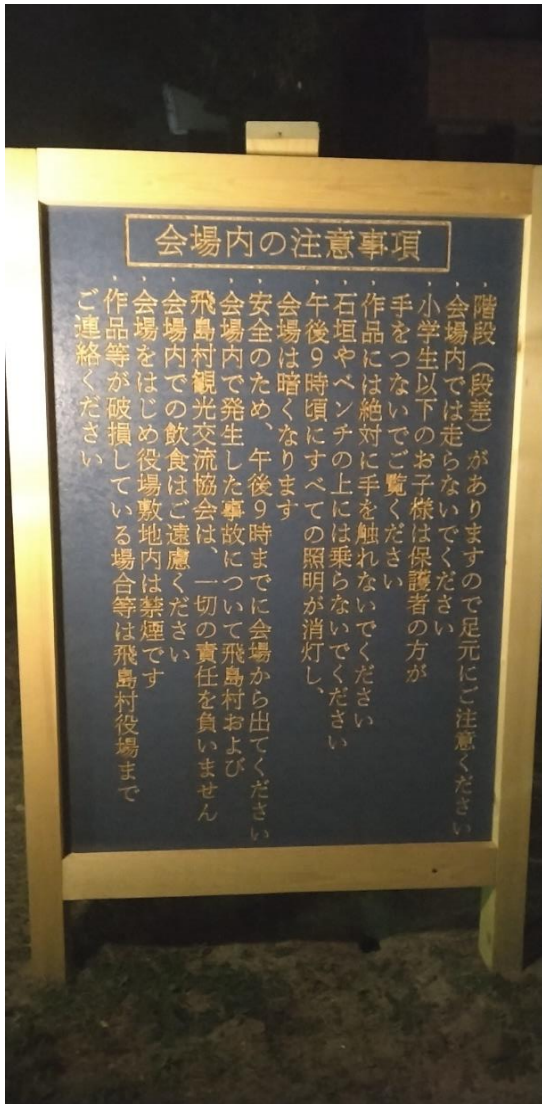 会場内の注意事項
、階段（段差）がありますので足元にご注意ください
、会場内では走らないでください
、小学生以下のお子様は保護者の方が
手をつないでご覧ください
、作品には絶対に手を触れないでください
、石垣やベンチの上には乗らないでください
、午後9時頃にすべての照明が消灯し、
会場は暗くなります
、安全のため、午後9時までに会場から出てください
、会場内で発生した事故について飛島村および
飛島村観光交流協会は、一切の責任を負いません
、会場内での飲食はご遠慮ください
、会場をはじめ役場敷地内は禁煙です
、作品等が破損している場合等は飛島村役場まで
ご連絡ください